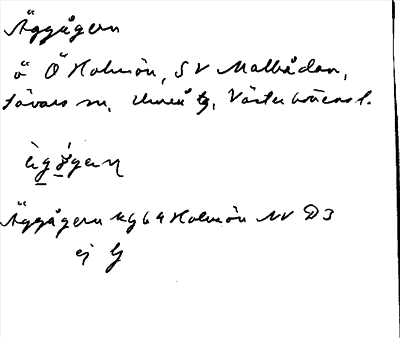 Äggågern
ö Ö Holmön, SV Malbådan,
Sävars sn, Umeå tg, Västerbottens l.
Äggågern Kg 69 Holmön NV D3
ej G